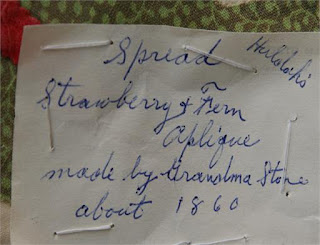 Spread
Strawberry & Fern
Aplique
made by Grandma Stone
about 1860